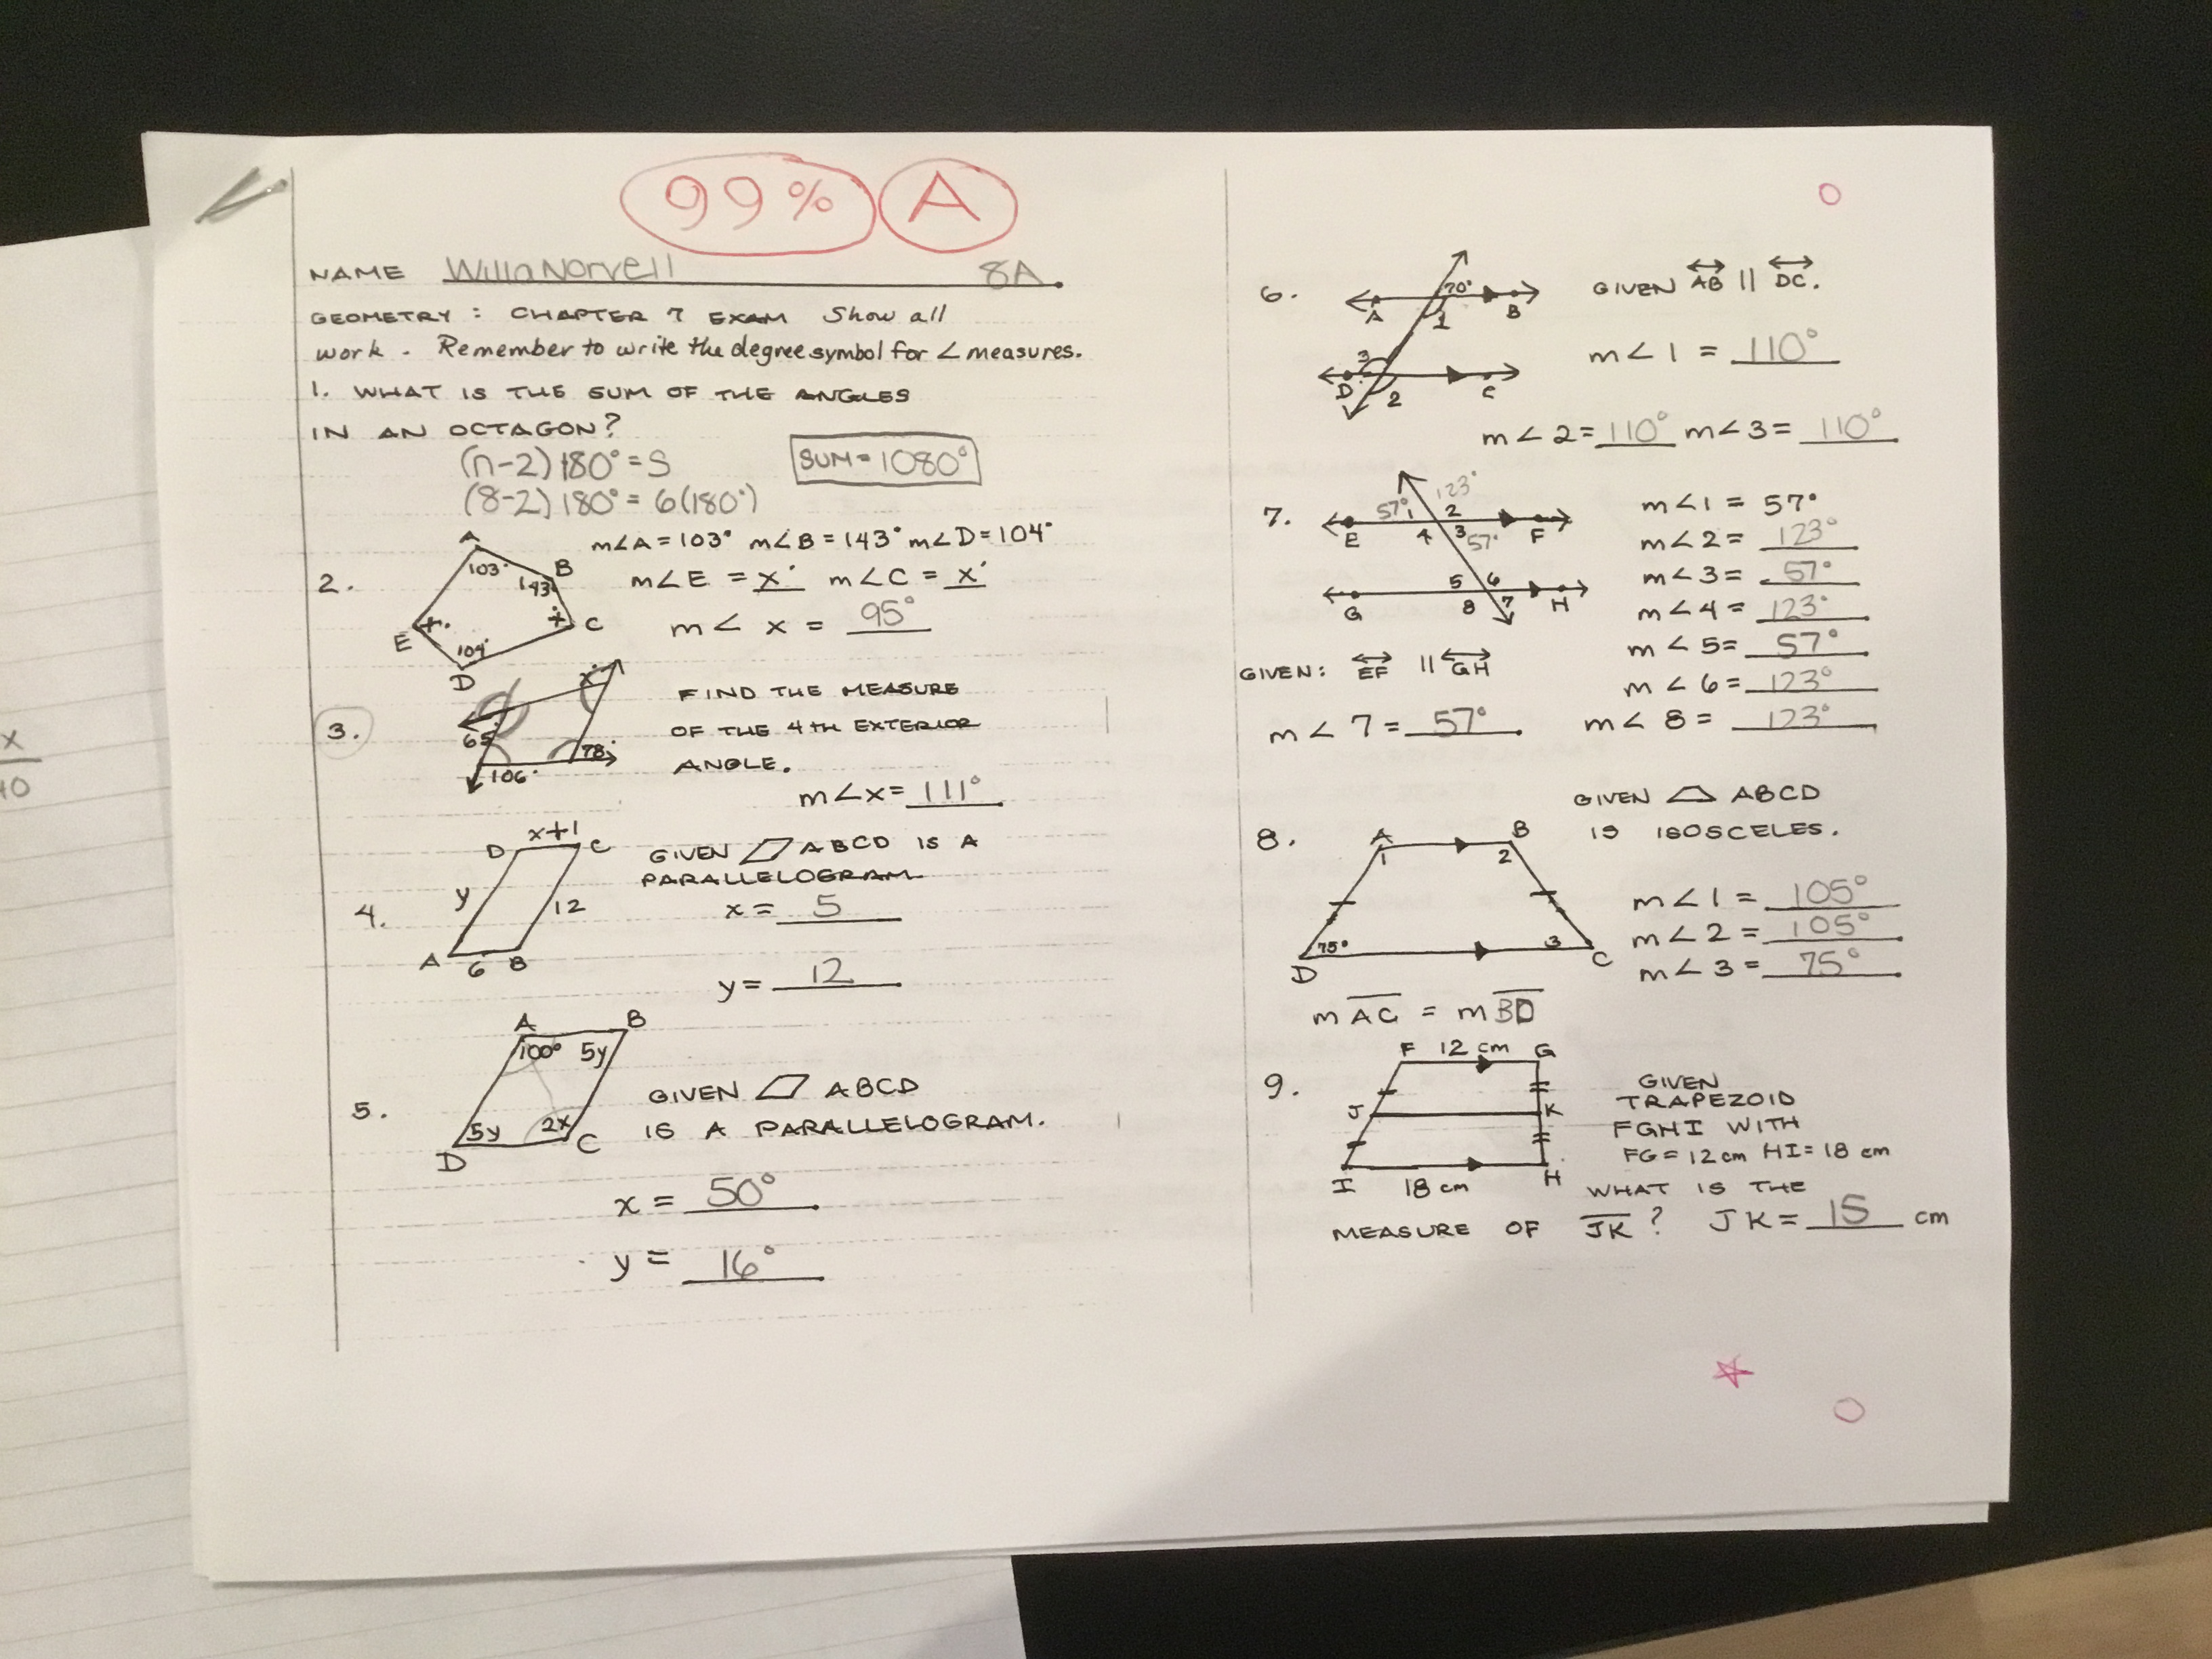 99% A
NAME Willa Norvell 8A
GEOMETRY: CHAPTER 7 EXAM Show all
work. Remember to write the degree symbol for ∠ measures.
1. WHAT IS THE SUM OF THE ANGLES
IN AN OCTAGON?
(n-2)180°=S
SUM=1080°
(8-2)180°=6(180°)
m∠A=103° m∠B=143° m∠D=104°
2.
A
B
C
D
E
103°
143
x
104°
x°
m∠E = x° m∠C = x°
m∠ x = 95°
3.
x°
65°
106°
78°
FIND THE MEASURE
OF THE 4TH EXTERIOR
ANGLE.
m∠x= 111°
4.
D x+1 C
y
12
A 6 B
GIVEN ▱ ABCD IS A
PARALLELOGRAM
x= 5
y= 12
5.
A B
100° 5y
5y 2x
D C
GIVEN ▱ ABCD
IS A PARALLELOGRAM.
x = 50°
y = 16°
6.
70°
A 1 B
3
D 2 C
GIVEN AB || DC.
m∠1 = 110°
m∠2= 110° m∠3= 110°
7.
123°
57° 1 2
E 4 3 57° F
5 6
G 8 7 H
m∠1 = 57°
m∠2= 123°
m∠3= 57°
m∠4= 123°
m∠5= 57°
m∠6= 123°
GIVEN: EF || GH
m∠7= 57° m∠8= 123°
GIVEN ⏢ ABCD
IS ISOSCELES.
8.
A B
1 2
75° 3
D C
m∠1 = 105°
m∠2= 105°
m∠3= 75°
mAC = mBD
9.
F 12 cm G
J K
I 18 cm H
GIVEN
TRAPEZOID
FGHI WITH
FG=12cm HI=18 cm
WHAT IS THE
MEASURE OF JK? JK= 15 cm
x
10